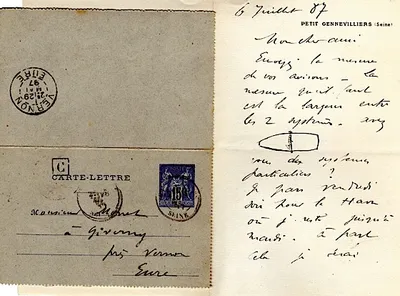 VERNON
EURE
C
CARTE-LETTRE
15c
SEINE
Monsieur Monet
à Giverny
près Vernon
Eure
6 Juillet 87
PETIT GENNEVILLIERS (Seine)
Mon cher ami
Envoyez la mesure
de vos avirons - la
mesure qu'il faut
est la largeur entre
les 2 systèmes. avez
vous des systèmes
particuliers ?
Je pars vendredi
soir pour le Havre
où je reste jusqu'à
mardi. à part
cela je serai